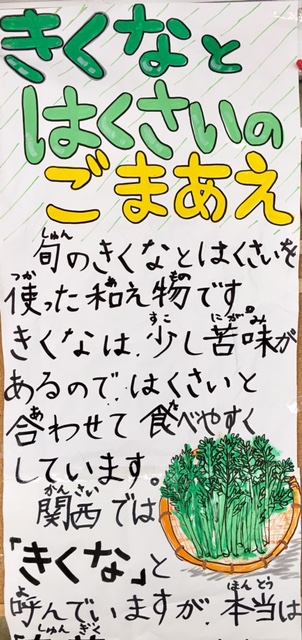 きくなと
はくさいの
ごまあえ
旬のきくなとはくさいを
使った和え物です
きくなは、少し苦味が
あるので、はくさいと
合わせて食べやすく
しています。
関西では
「きくな」と
呼んでいますが、本当は